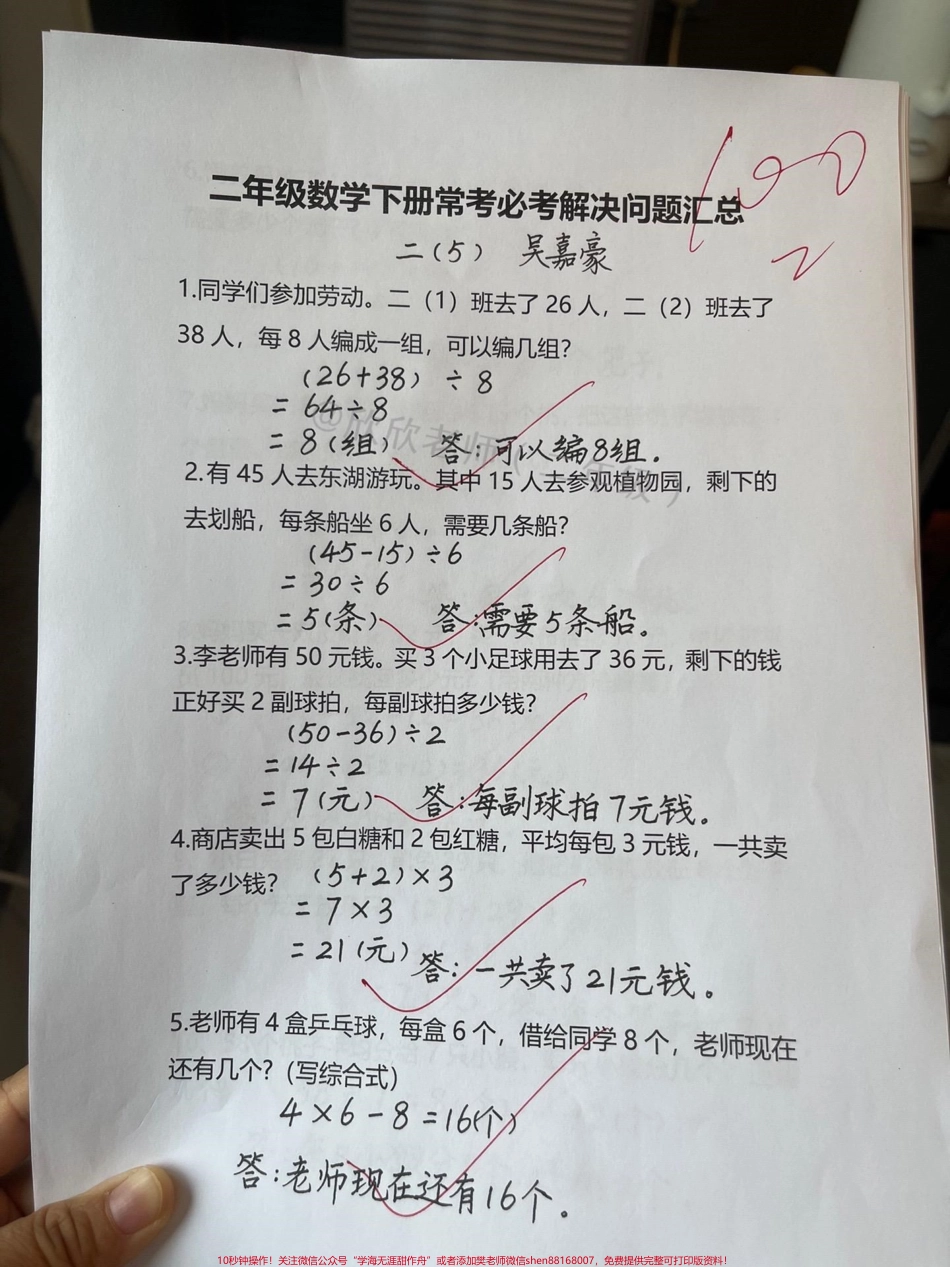 二年级数学下册常考必考解决问题汇总
100
二(5) 吴嘉豪
1.同学们参加劳动。二（1）班去了26人，二（2）班去了
38人，每8人编成一组，可以编几组？
(26+38) ÷ 8
= 64÷8
@欣欣老师（二年级）
= 8(组) 答:可以编8组.
2.有45人去东湖游玩。其中15人去参观植物园，剩下的
去划船，每条船坐6人，需要几条船？
(45-15) ÷6
= 30÷6
= 5(条) 答:需要5条船.
3.李老师有50元钱。买3个小足球用去了36元，剩下的钱
正好买2副球拍，每副球拍多少钱？
(50-36)÷2
=14÷2
= 7(元) 答:每副球拍7元钱.
4.商店卖出5包白糖和2包红糖，平均每包3元钱，一共卖
了多少钱？ (5+2)×3
= 7×3
= 21(元) 答:一共卖了21元钱.
5.老师有4盒乒乓球，每盒6个，借给同学8个，老师现在
还有几个？(写综合式)
4×6-8=16(个)
答:老师现在还有16个.
10秒钟操作！关注微信公众号“学海无涯甜作舟”或者添加樊老师微信shen88168007，免费提供完整可打印版资料！